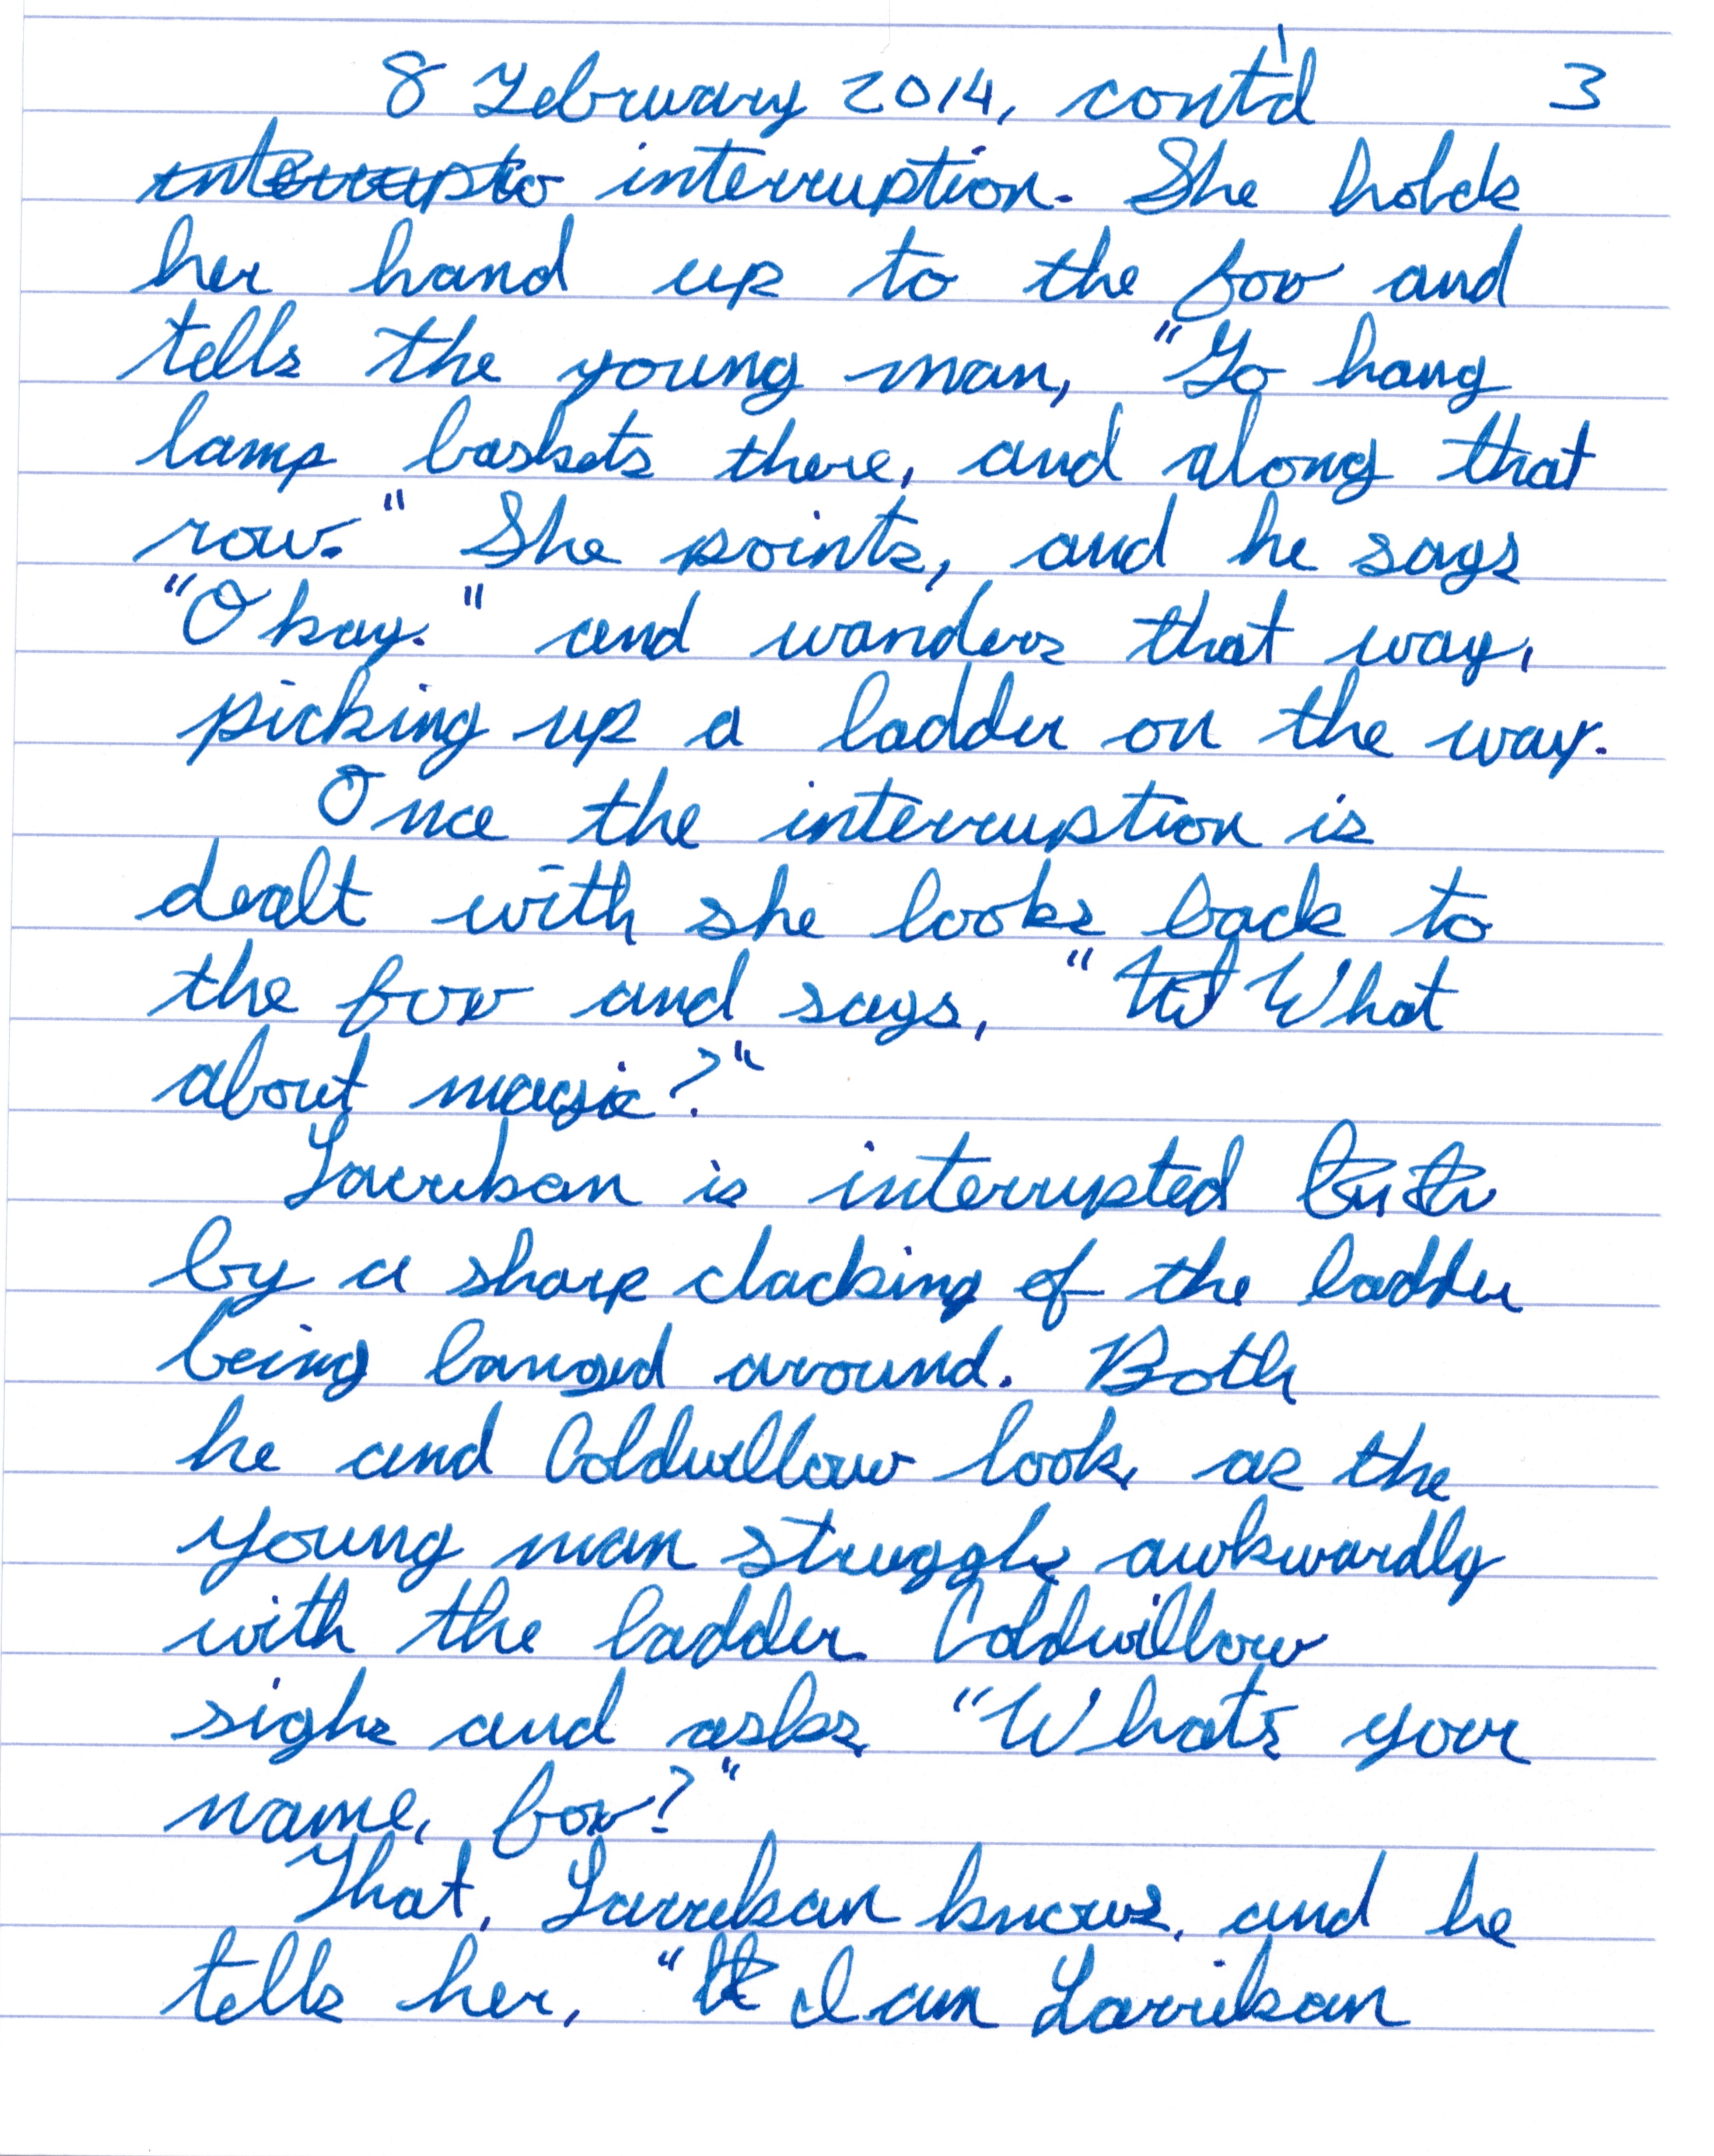 8 February 2014, cont'd 3
interrupto interruption. She holds
her hand up to the boy and
tells the young man, "Go hang
lamp baskets there, and along that
row." She points, and he says
"Okay." and wanders that way,
picking up a ladder on the way.
Once the interruption is
dealt with she looks back to
the boy and says, " What
about magic?"
Larrikan is interrupted
by a sharp clacking of the ladder
being banged around. Both
he and Coldwillow look, as the
young man struggles awkwardly
with the ladder Coldwillow
sighs and asks, "What's your
name, boy?"
That, Larrikan knows, and he
tells her, "It I am Larrikan